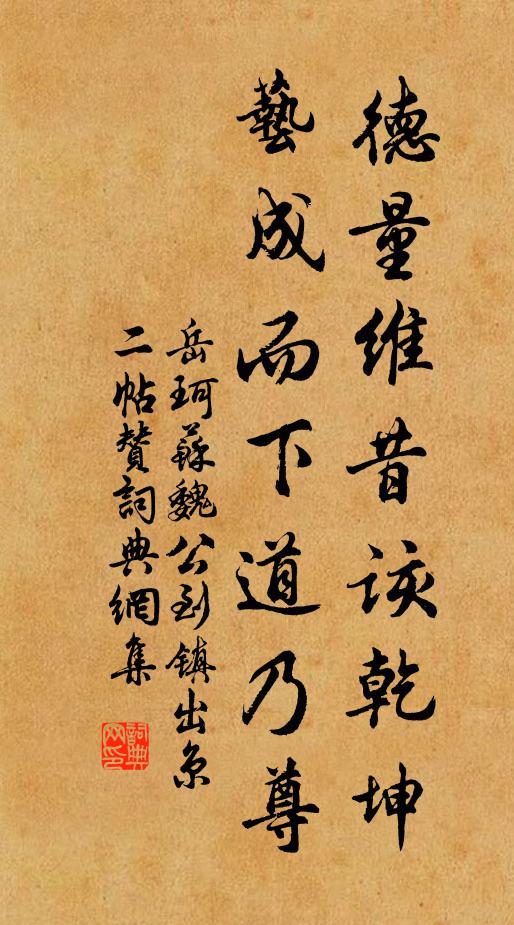 德量維昔該乾坤
藝成而下道乃尊
岳珂蘇魏公到鎮出京
二帖贊詞典網集
詞典
网印